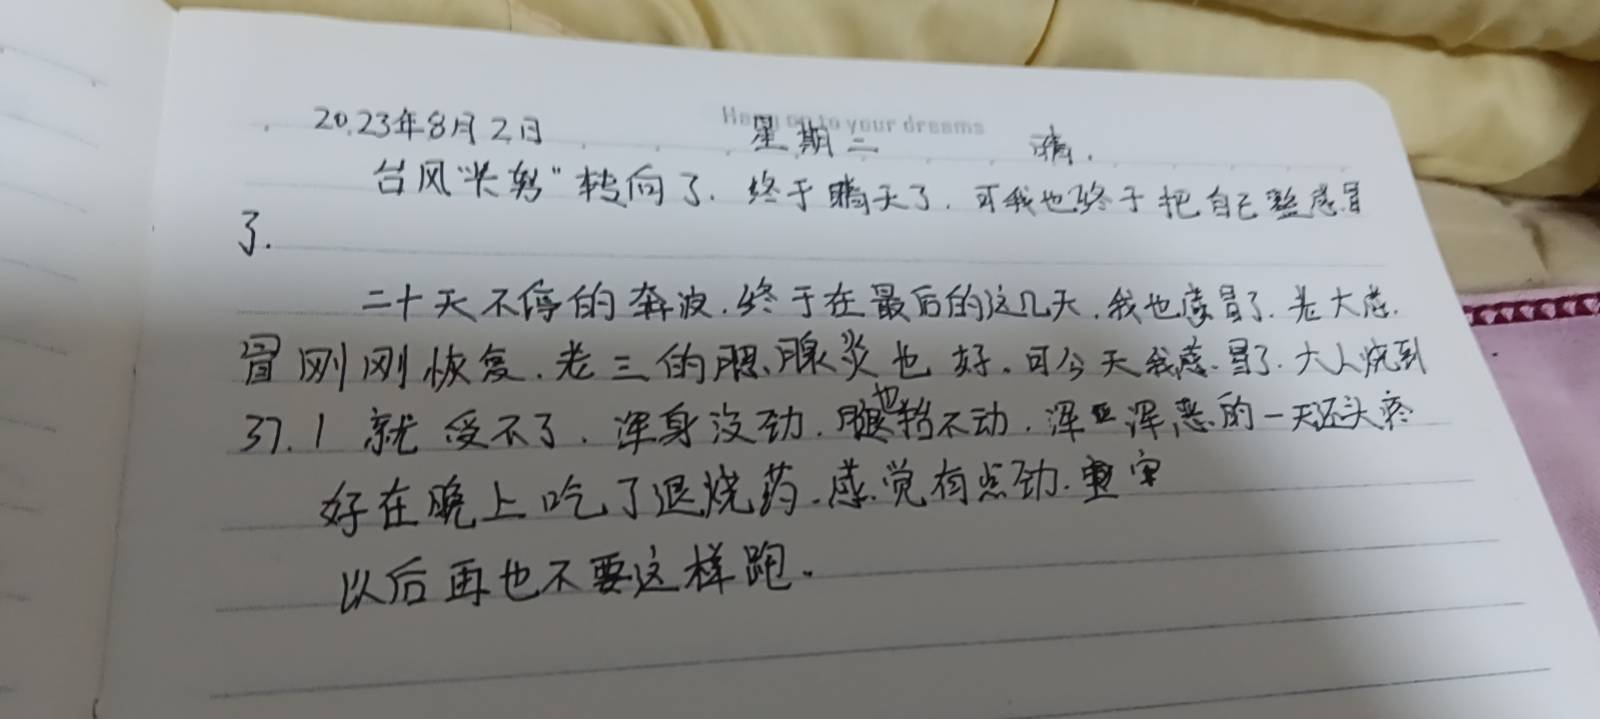 Hang on to your dreams
2023年8月2日 星期二 晴.
台风"卡努"转向了.终于晴天了.可我也终于把自己整感冒
了.
二十天不停的奔波.终于在最后的这几天.我也感冒了.老大感.
冒刚刚恢复.老三的腺炎也好.可今天我感冒了.大人烧到
37.1就受不了.浑身没劲.腿也抬不动.浑浑的一天还头疼
好在晚上吃了退烧药.感觉有点劲.
以后再也不要这样跑.